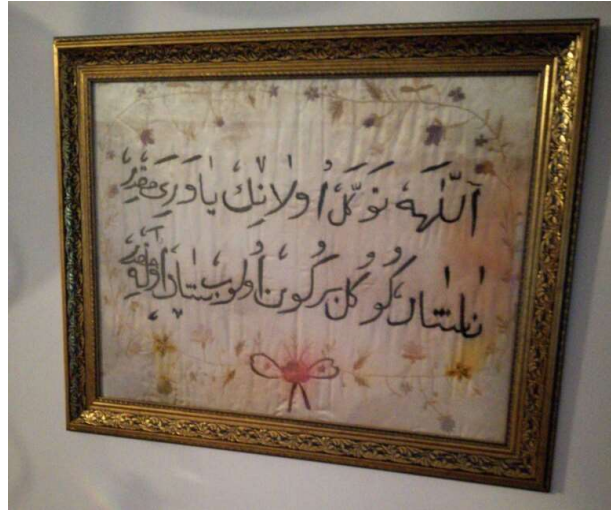 اَللّٰهَهْ تَوَكَّلْ اُولانِكْ ياوَرِى حَقْدِرْ
ناشادْ كُوكُلْ بِرْكُونْ اُولُوبْ شادْ اُولَهجَقْدِرْ